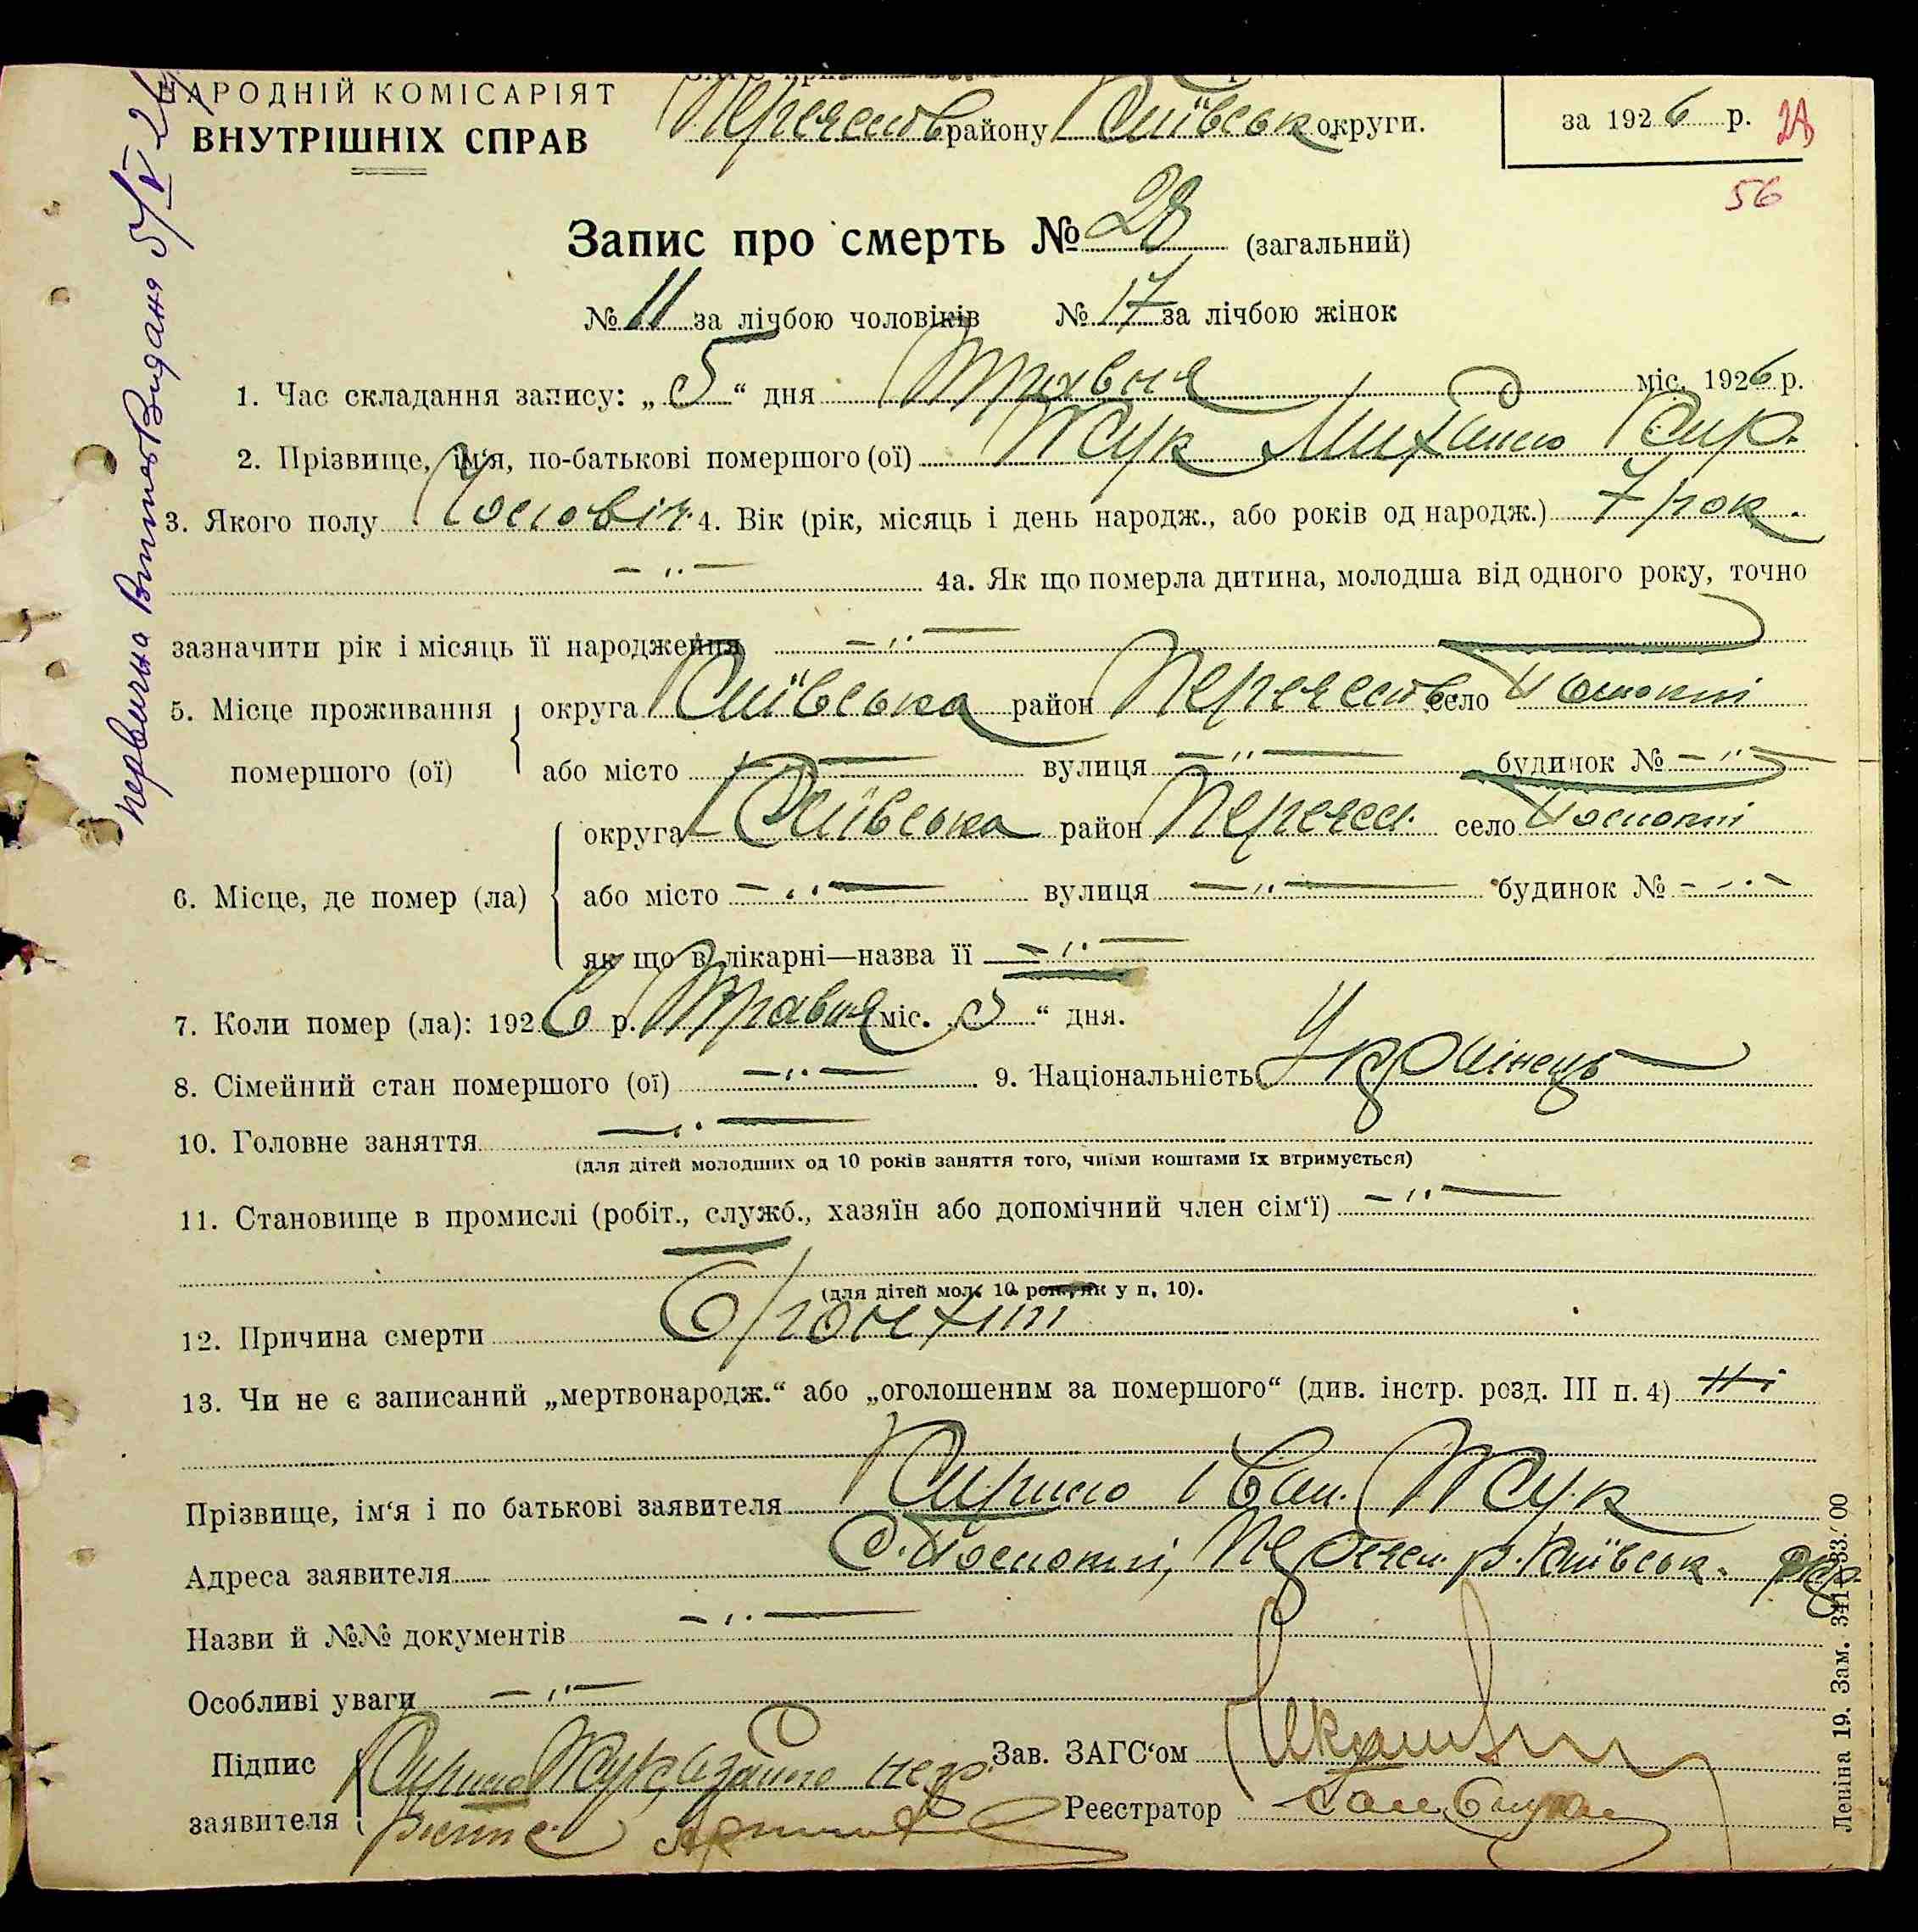 НАРОДНІЙ КОМІСАРІЯТ
ВНУТРІШНІХ СПРАВ
району Київськ округи.
за 1926 р. 28
56
Запис про смерть № 28 (загальний)
№ 11 за лічбою чоловіків № 17 за лічбою жінок
1. Час складання запису: „5“ дня Травня міс. 1926 р.
2. Прізвище, ім‘я, по-батькові помершого (ої) Жук Михайло Кир.
3. Якого полу Чоловік. 4. Вік (рік, місяць і день народж., або років од народж.) 7 рок.
— „ — 4а. Як що померла дитина, молодша від одного року, точно
зазначити рік і місяць її народження — „ —
5. Місце проживання помершого (ої) округа Київська район село
або місто — „ — вулиця — „ — будинок № — „ —
6. Місце, де помер (ла) округа Київська район село
або місто — „ — вулиця — „ — будинок № — „ —
як що в лікарні—назва її — „ —
7. Коли помер (ла): 1926 р. Травня міс. „5“ дня.
8. Сімейний стан помершого (ої) — „ — 9. Національність Українець
10. Головне заняття — „ —
(для дітей молодших од 10 років заняття того, чиїми коштами їх втримується)
11. Становище в промислі (робіт., служб., хазяїн або допомічний член сім‘ї) — „ —
(для дітей мол. 10 рок., як у п. 10).
12. Причина смерти Бронхит
13. Чи не є записаний „мертвонародж.“ або „оголошеним за помершого“ (див. інстр. розд. III п. 4) Ні
Прізвище, ім‘я і по батькові заявителя Кирило Іван. Жук
Адреса заявителя р. Київськ. окр.
Назви й №№ документів — „ —
Особливі уваги — „ —
Підпис заявителя Кирило Жук, а за його негр
Зав. ЗАГС‘ом
Реєстратор
первична Витпис Видана 5/V 26
Леніна 19. Зам. 341—33.′00